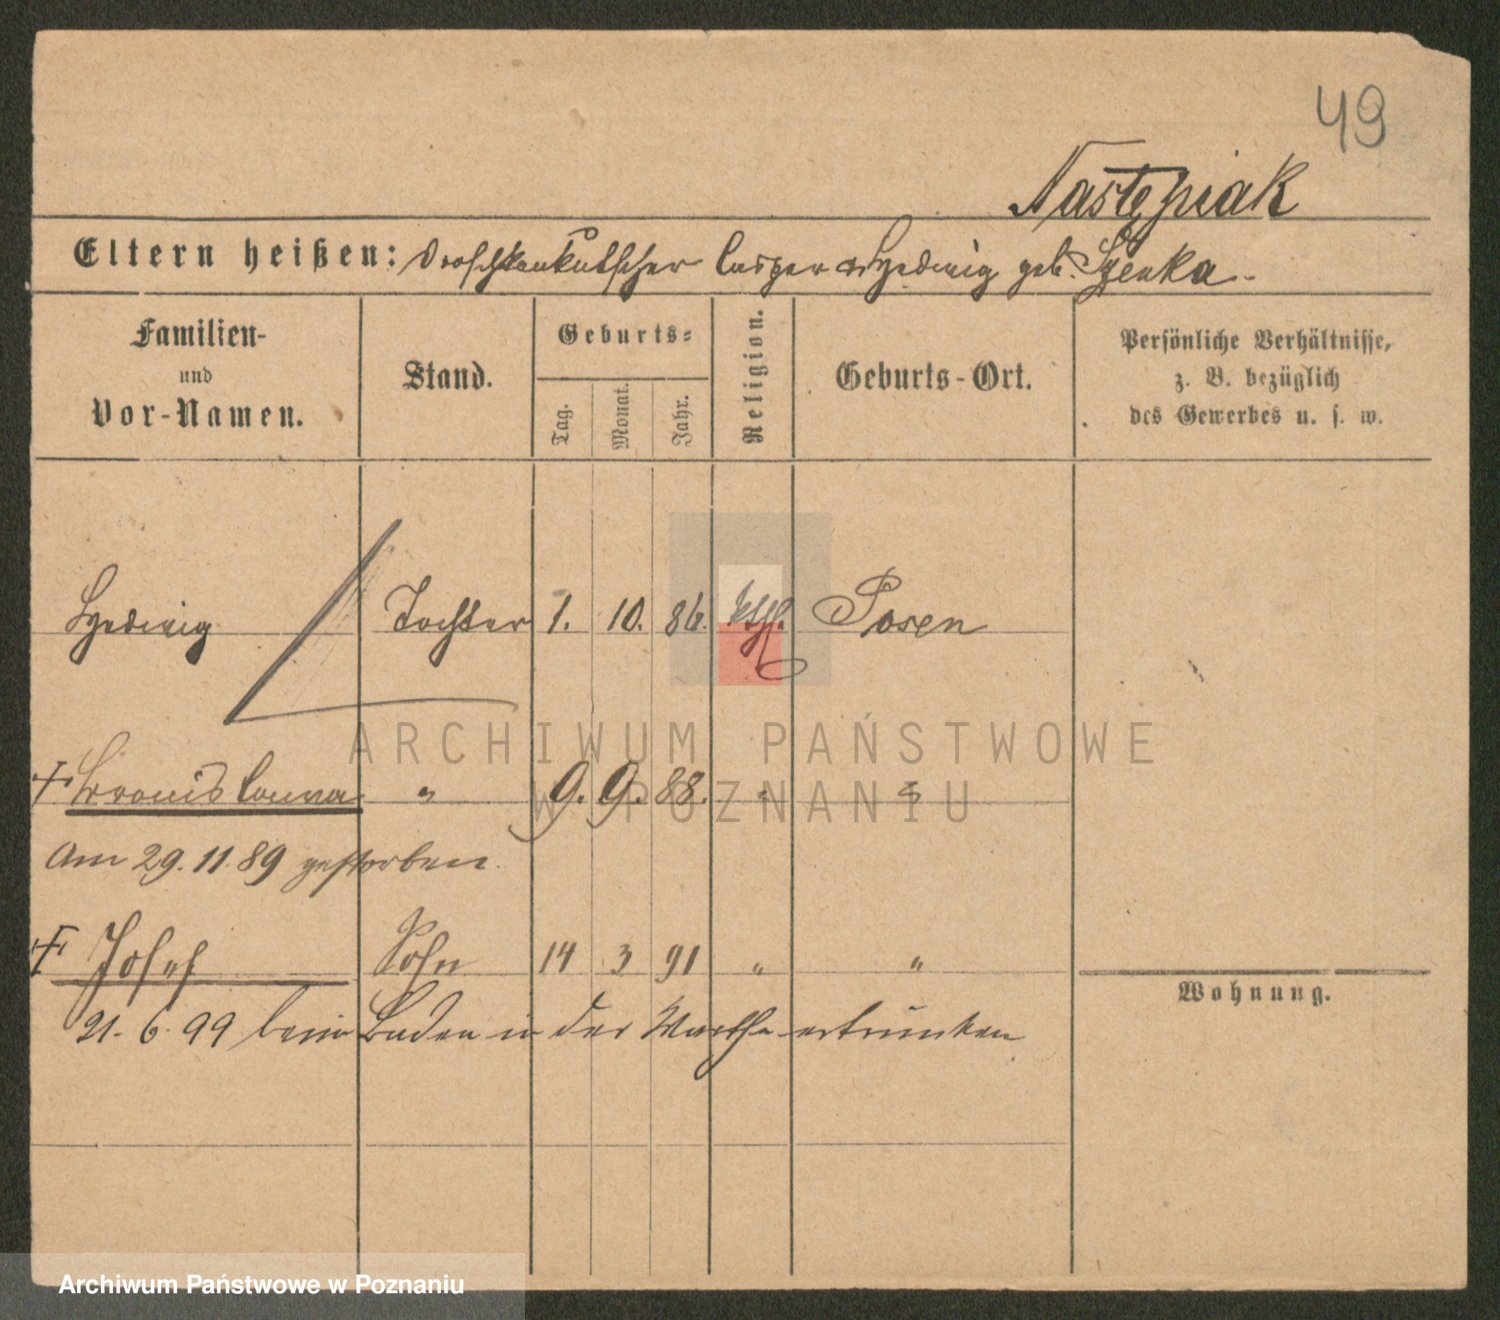 49
Następiak
Eltern heißen: Droschkenkutscher Casper u. Hedwig geb. Szenka.
Familien-
und
Vor-Namen.
Stand.
Geburts-
Tag.
Monat.
Jahr.
Religion.
Geburts-Ort.
Persönliche Verhältnisse,
z. B. bezüglich
des Gewerbes u. s. w.
Hedwig Tochter 1. 10. 86. kth. Posen
ARCHIWUM PAŃSTWOWE
W POZNANIU
† Bronislawa " 9. 9. 88. " "
Am 29.11.89 gestorben.
† Josef Sohn 14 3 91 " "
Wohnung.
21. 6. 99 beim Baden in der Warthe ertrunken
Archiwum Państwowe w Poznaniu